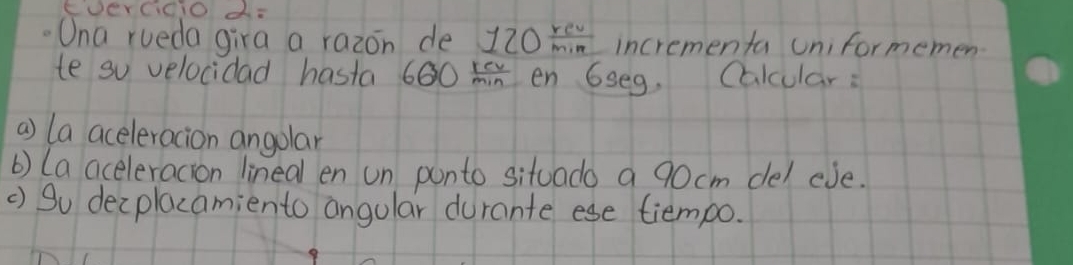 Ejercicio 2:
• Una rueda gira a razón de 120 rev/min incrementa uniformemen-
te su velocidad hasta 660 rev/min en 6seg. Calcular:
a) la aceleracion angular
b) La aceleracion lineal en un punto situado a 90cm del eje.
c) Su dezplazamiento angular durante ese tiempo.